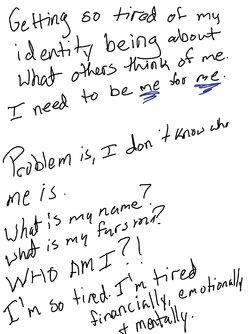 Getting so tired of my
identity being about
what others think of me.
I need to be me for me.
Problem is, I don't know who
me is.
What is my name?
What is my fursona?
WHO AM I?!
I'm so tired. I'm tired
financially, emotionally
& mentally.